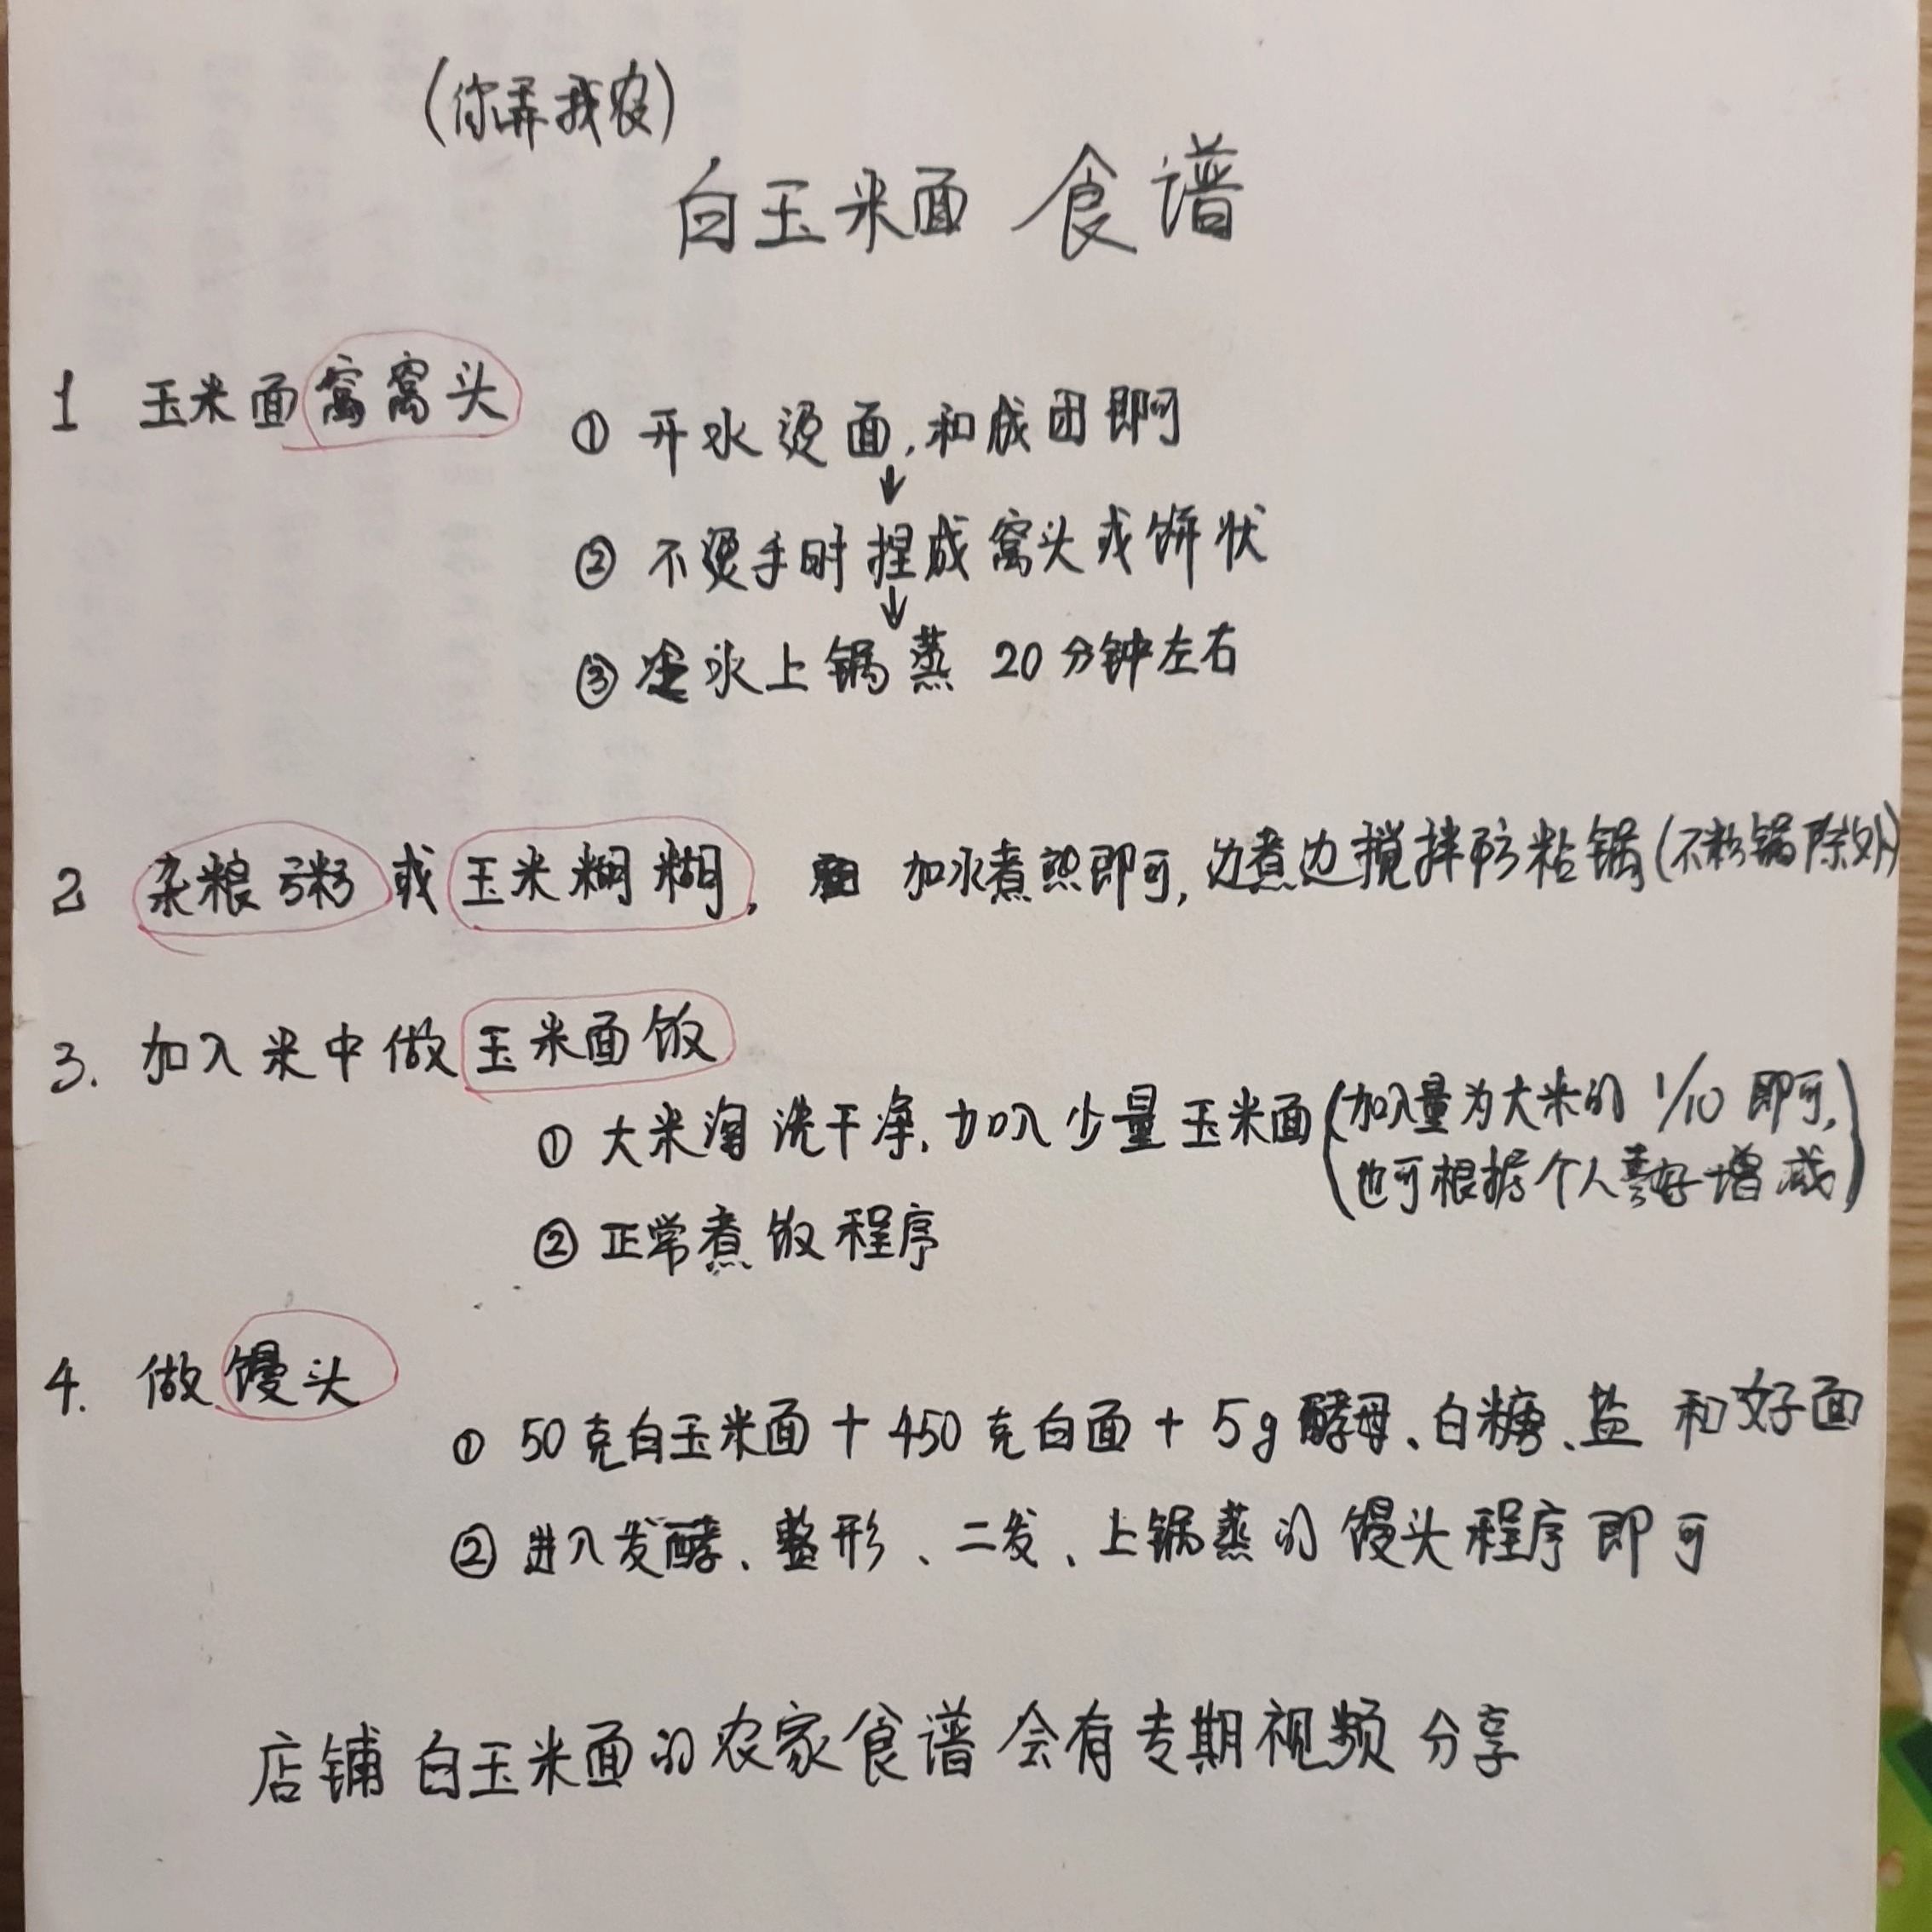 (你弄我农)
白玉米面 食谱
1 玉米面窝窝头
① 开水烫面,和成团即可
↓
② 不烫手时捏成窝头或饼状
↓
③ 冷水上锅蒸 20分钟左右
2 杂粮粥或玉米糊糊, 加水煮熟即可,边煮边搅拌防粘锅(不粘锅除外)
3. 加入米中做玉米面饭
① 大米淘洗干净,加入少量玉米面(加入量为大米的 1/10 即可,
也可根据个人喜好增减)
② 正常煮饭程序
4. 做馒头
① 50克白玉米面 + 450克白面 + 5g 酵母、白糖、盐 和好面
② 进入发酵、整形、二发、上锅蒸的 馒头程序即可
店铺 白玉米面的农家食谱 会有专期视频分享